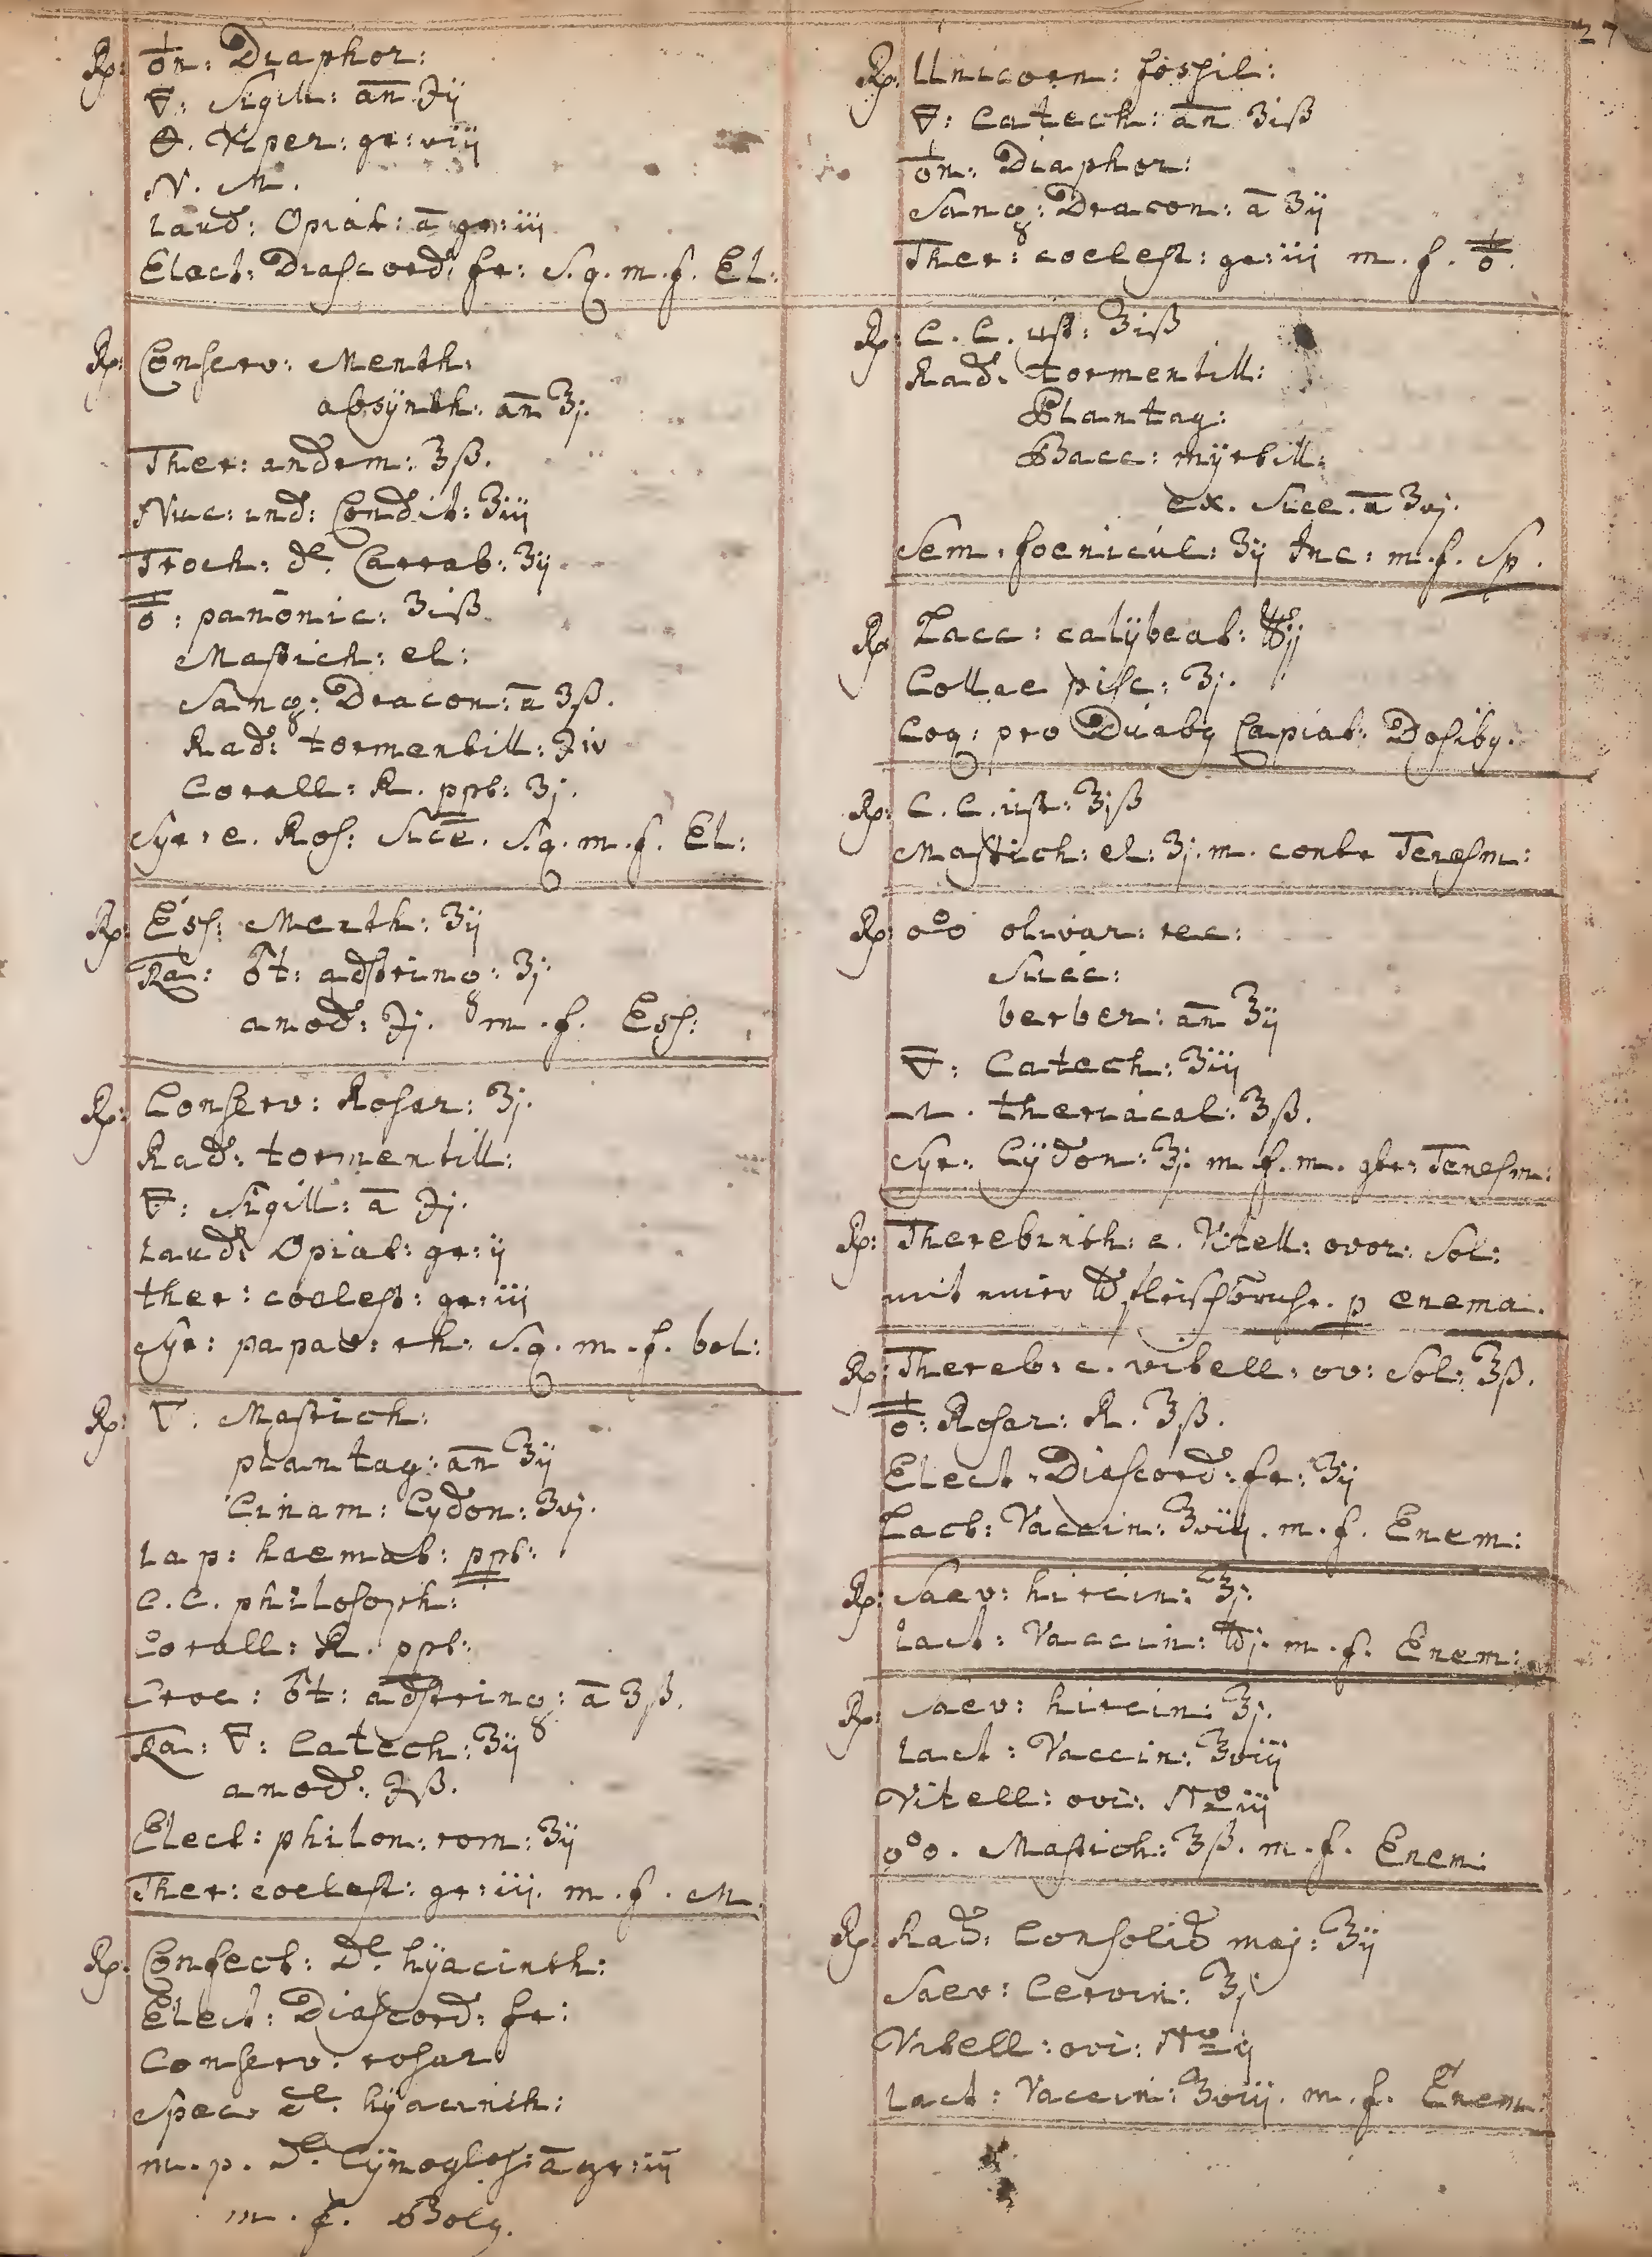 27
Rp: ♁n: Diaphor:
🜃: Sigill: an ℈ij
🜔. Vip̃er: gr: viij
N. M.
Laud: Opiat: ā gr: iij
Elect: Diascord: fr: S.q. m. f. El:
Rp: Conserv: Menth:
absÿnth: an ℥j.
Ther: androm: ℥ß.
Nuc: ind: Condit: ʒiij
Troch: de Carrab: ʒij
🜍: panonic: ʒiß
Mastich: el:
Sang: Dracon: ā ʒß.
Rad: tormentill: ℈iv
Corall: R. ppt: ʒj.
Syr: e. Ros: Sicc. S.q. m. f. El:
Rp: Ess: Menth: ʒij
Ra: ♂t: adstring: ʒj.
anod: ℈j. m. f. Ess:
Rp: Conserv: Rosar: ʒj.
Rad: tormentill:
🜃: Sigill: ā ℈j.
Laud: Opiat: gr: ij
ther: coelest: gr: iij
Syr: papav: rh: S.q. m. f. bol:
Rp: ▽. Mastich:
plantag: an ℥ij
Cinam: Cydon: ʒvj.
Lap: haemat: ppt:
C. C. philosoph:
Corall: R. ppt:
Croc: ♂t: adstring: ā ʒß.
Ra: 🜃: Catech: ʒij
anod: ℈ß.
Elect: philon: rom: ʒij
Ther: coelest: gr: iij. m. f. M.
Rp: Confect: de hÿacinth:
Elect: Diascord: fr:
Conserv: rosar
Spec. de hÿacinth:
m. p. de Cÿnoglos: ā gr: iij
m. f. Bolg.
Rp: Unicorn: fossil:
🜃: Catech: an ʒiß
♁n: Diaphor:
Sang: Dracon: ā ʒij
Ther: coelest: gr: iij m. f. 🜍.
Rp: C. C. ust: ʒiß
Rad. tormentill:
Plantag:
Bacc: mÿrtill:
ex. Sicc. ā ʒvj.
Sem. foenicul: ʒij Inc: m. f. Sp.
Rp Lacc: calÿbeat: ℔ij
Collae pisc: ʒj.
Coq: pro Duabg Capiat: Dosibg.
Rp: C. C. ust: ʒjß
Mastich: el: ʒj. m. contr Tenesm:
Rp: o°o olivar: rec:
Succ:
berber: an ℥ij
🜃: Catech: ʒiij
M. theriacal: ℥ß.
Syr: Cÿdon: ℥j. m. f. m. gtr: Tenesm:
Rp: Therebinth: e. Vitell: ovor: Sol:
mit einer ℔ fleischbruhe. p enema.
Rp: Thereb: e. vitell: ov: Sol: ℥ß.
🜍: Rosar: R. ℥ß.
Elect. Diascord: fr: ʒij
Lact: Vaccin: ℥viij. m. f. Enem:
Rp: Saev: hircin: ℥j.
Lact: Vaccin: ℔j. m. f. Enem:
Rp: Saev: hircin: ℥j.
Lact: Vaccin: ℥viij
Vitell: ovi: No iij
o°o. Mastich: ℥ß. m. f. Enem:
Rp: Rad: Consolid maj: ℥ij
Saev: Cervin: ℥j
Vitell: ovi: No ij
Lact: Vaccin: ℥viij. m. f. Enem: